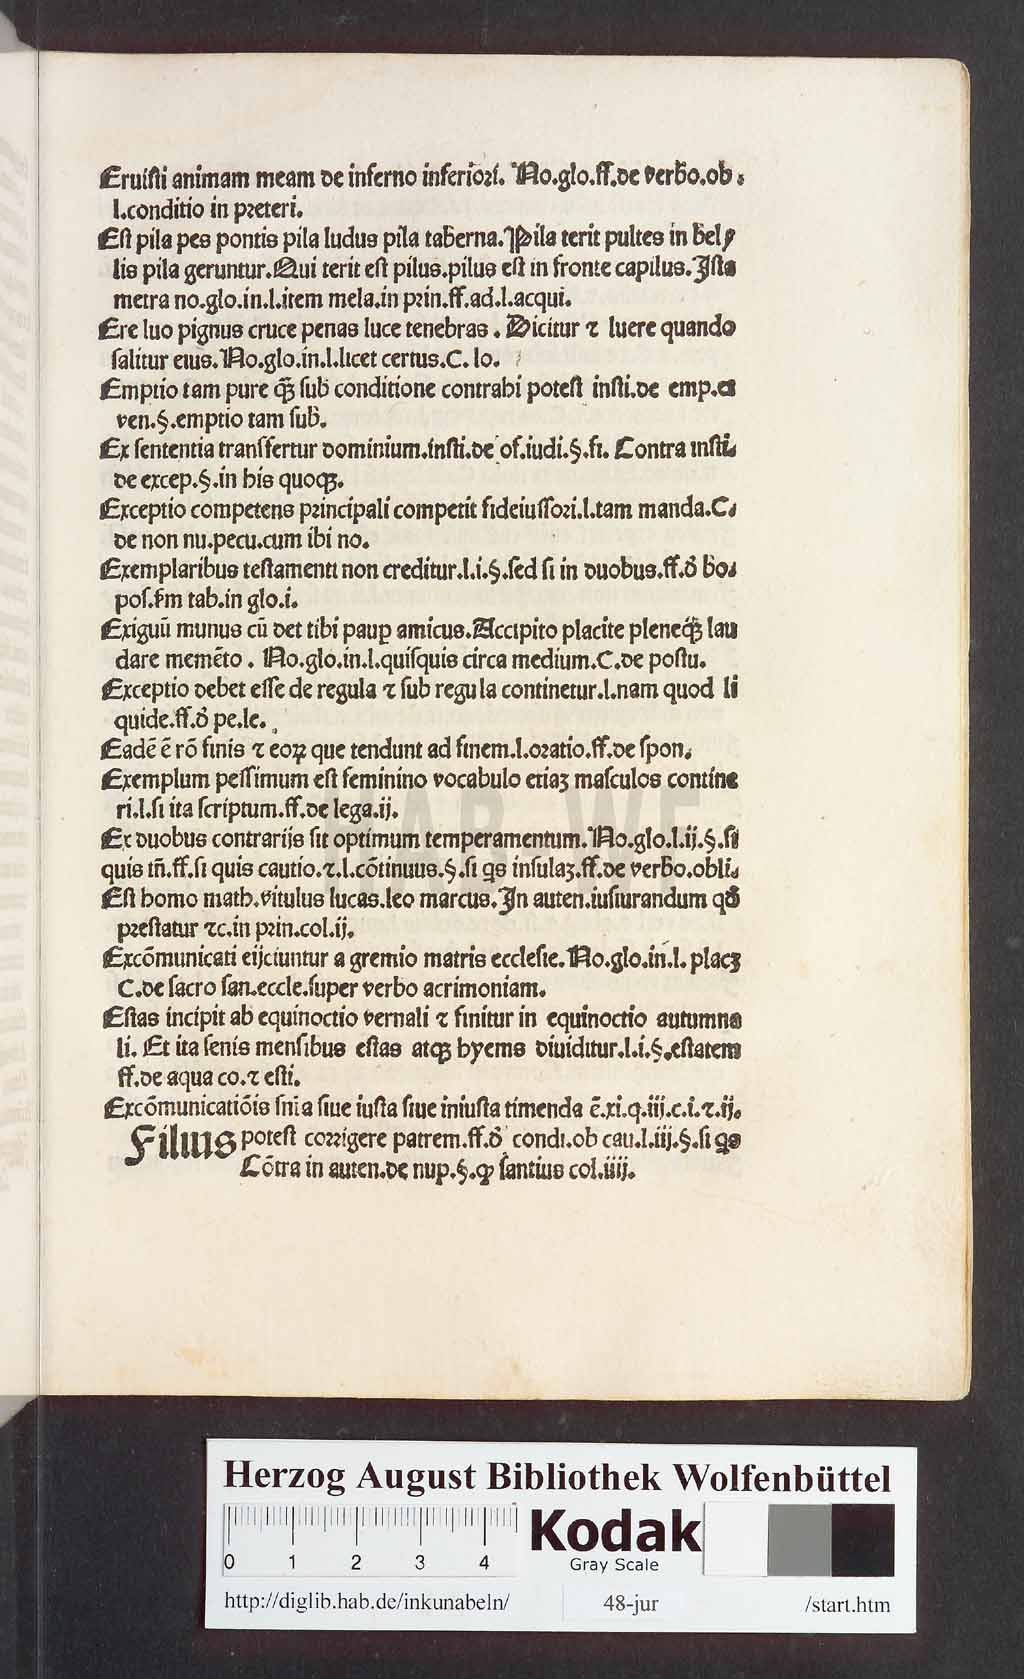 Eruiſti animam meam de inferno inferiori. No.glo.ff.de verbo.ob.
l.conditio in preteri.
Eſt pila pes pontis pila ludus pila taberna. Pila terit pultes in bel/
lis pila geruntur. Qui terit eſt pilus. pilus eſt in fronte capilus. Iſta
metra no.glo.in.l.item mela.in prin.ff.ad.l.acqui.
Ere luo pignus cruce penas luce tenebras. Dicitur ⁊ luere quando
ſalitur eius. No.glo.in.l.licet certus.C.lo.
Emptio tam pure qꝫ̄ ſub conditione contrahi poteſt inſti.de emp.et
ven.§.emptio tam ſub.
Ex ſententia tranſfertur dominium.inſti.de of.iudi.§.fi. Contra inſti.
de excep.§.in his quoqꝫ.
Exceptio competens principali competit fideiuſſori.l.tam manda.C.
de non nu.pecu.cum ibi no.
Exemplaribus teſtamenti non creditur.l.i.§.ſed ſi in duobus.ff.đ bo.
poſ.ẜm tab.in glo.i.
Exiguū munus cū det tibi paup̱ amicus. Accipito placite pleneqꝫ̄ lau
dare memēto. No.glo.in.l.quiſquis circa medium.C.de poſtu.
Exceptio debet eſſe de regula ⁊ ſub regula continetur.l.nam quod li
quide.ff.đ pe.le.
Eadē ē rō finis ⁊ eoꝝ que tendunt ad finem.l.oratio.ff.de ſpon.
Exemplum peſſimum eſt feminino vocabulo etiaꝫ maſculos contine
ri.l.ſi ita ſcriptum.ff.de lega.ij.
Ex duobus contrarijs fit optimum temperamentum. No.glo.l.ij.§.ſi
quis in̄.ff.ſi quis cautio.⁊.l.cōtinuus.§.ſi q̱s inſulaꝫ.ff.de verbo.obli.
Eſt homo math.vitulus lucas.leo marcus. In auten.iuſiurandum qđ
preſtatur ⁊c.in prin.col.ij.
Excōmunicati eijciuntur a gremio matris eccleſie. No.glo.in.l.placꝫ
C.de ſacro ſan.eccle.ſuper verbo acrimoniam.
Eſtas incipit ab equinoctio vernali ⁊ finitur in equinoctio autumna
li. Et ita ſenis menſibus eſtas atqꝫ hyems diuiditur.l.i.§.eſtatem
ff.de aqua co.⁊ eſti.
Excōmunicatiōis ſn̄ia ſiue iuſta ſiue iniuſta timenda ē.xi.q.iij.c.i.⁊.ij.
Filius poteſt corrigere patrem.ff.đ condi.ob cau.l.iij.§.ſi q̱s
Cōtra in auten.de nup.§.ꝙ ſantius col.iiij.
HAB-WF
Herzog August Bibliothek Wolfenbüttel
0 1 2 3 4
Kodak
Gray Scale
http://diglib.hab.de/inkunabeln/ 48-jur /start.htm